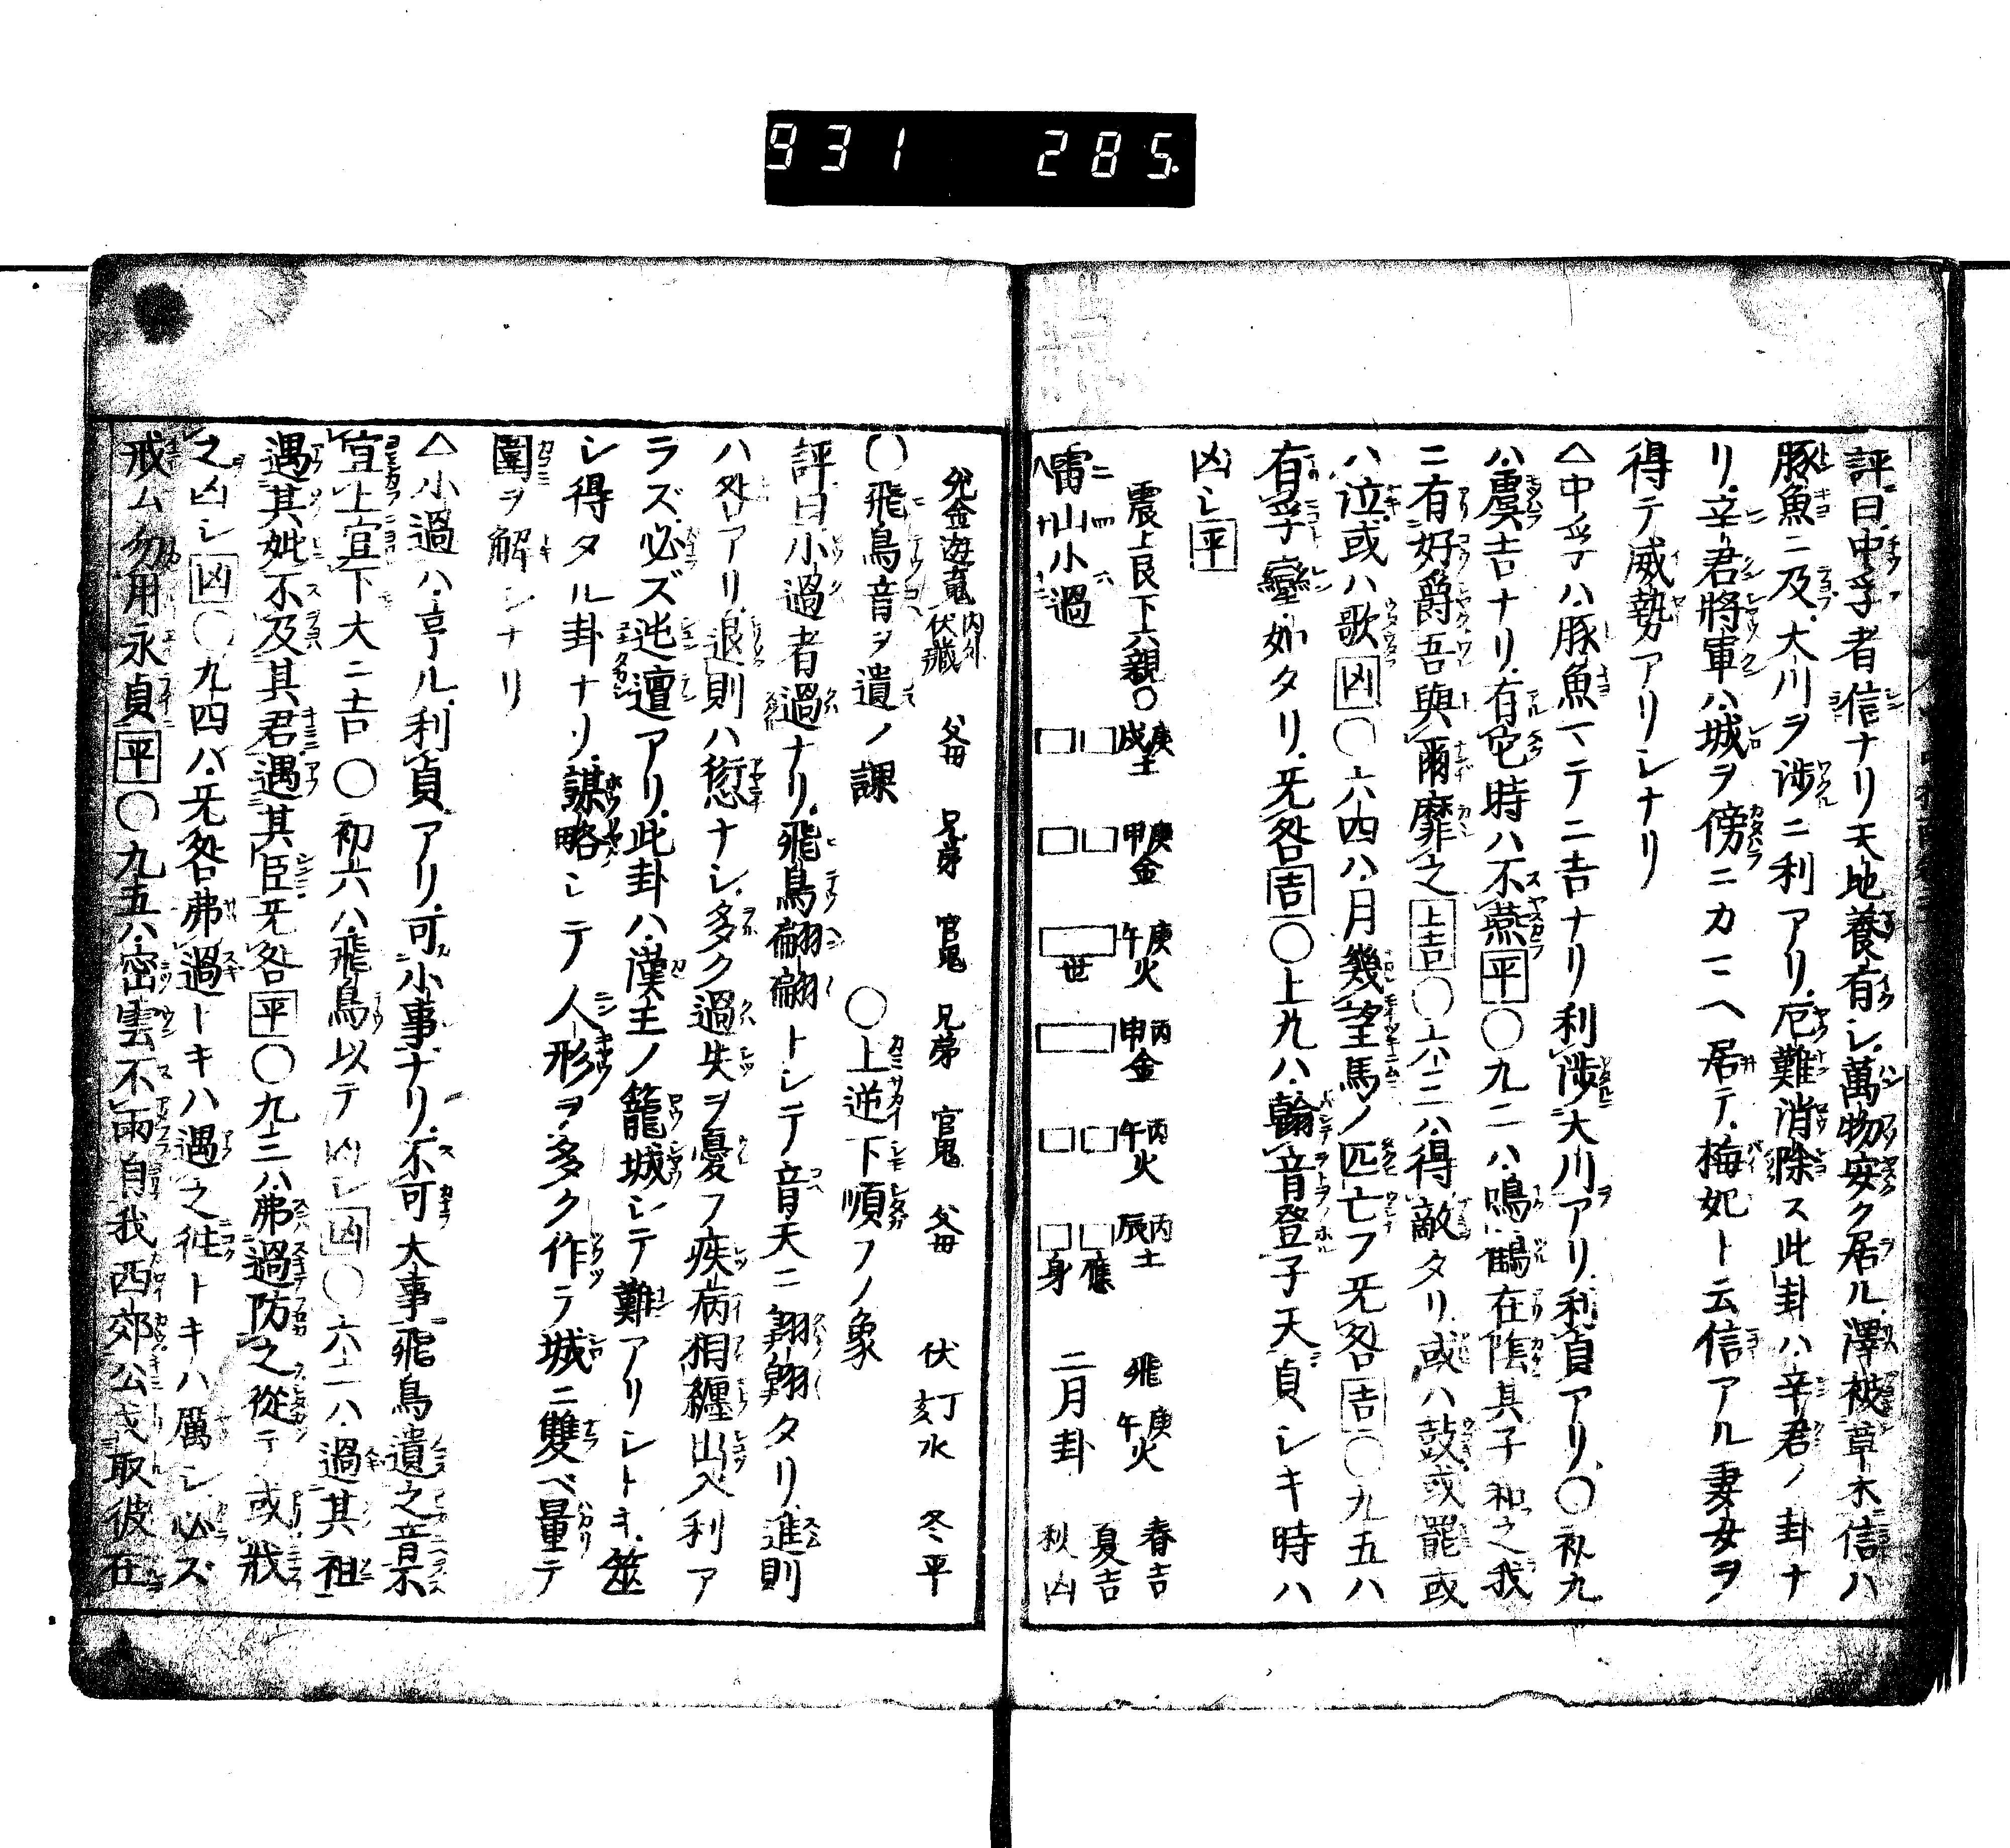 931 285.
評曰中孚者信ナリ天地養有シ萬物安ク居ル澤被草木信ハ
豚魚ニ及大川ヲ渉ニ利アリ厄難消除ス此卦ハ辛君ノ卦ナ
リ辛君將軍ハ城ヲ傍ニカマヘ居テ梅妃ト云信アル妻女ヲ
得テ威勢アリシナリ
△中孚ハ豚魚マテニ吉ナリ利渉大川アリ利貞アリ〇初九
ハ虞吉ナリ有它時ハ不燕平〇九二ハ鳴鶴在陰其子和之我
ニ有好爵吾與爾靡之上吉〇六三ハ得敵タリ或ハ鼓或罷或
ハ泣或ハ歌凶〇六四ハ月幾望馬ノ匹亡フ旡咎吉〇九五ハ
有孚攣如タリ旡咎吉〇上九ハ翰音登于天貞シキ時ハ
凶シ平
震上艮下六親〇 庚戌土 庚申金 庚午火 丙申金 丙午火 丙辰土 飛庚午火 春吉
夏吉
雷山小過 世 應 身 二月卦 秋凶
兌金遊魂 内外伏藏 父母 兄弟 官鬼 兄弟 官鬼 父母 伏丁亥水 冬平
〇飛鳥音ヲ遺ノ課 〇上逆下順フノ象
評曰小過者過ナリ飛鳥翩翩トシテ音天ニ翔翔タリ進則
ハ咎アリ退則ハ愆ナシ多ク過失ヲ憂フ疾病相纏出入利ア
ラズ必ズ迍邅アリ此卦ハ漢主ノ籠城シテ難アリシトキ筮
シ得タル卦ナリ謀略シテ人形ヲ多ク作テ城ニ雙ベ量テ
圍ヲ解シナリ
△小過ハ亨ル利貞アリ可小事ナリ不可大事飛鳥遺之音不
宜上宜下大ニ吉〇初六ハ飛鳥以テ凶シ凶〇六二ハ過其祖
遇其妣不及其君遇其臣旡咎平〇九三ハ弗過防之從テ或戕
之凶シ凶〇九四ハ旡咎弗過トキハ遇之往トキハ厲シ必ズ
戒ム勿用永貞平〇九五ハ密雲不雨自我西郊公弋取彼在